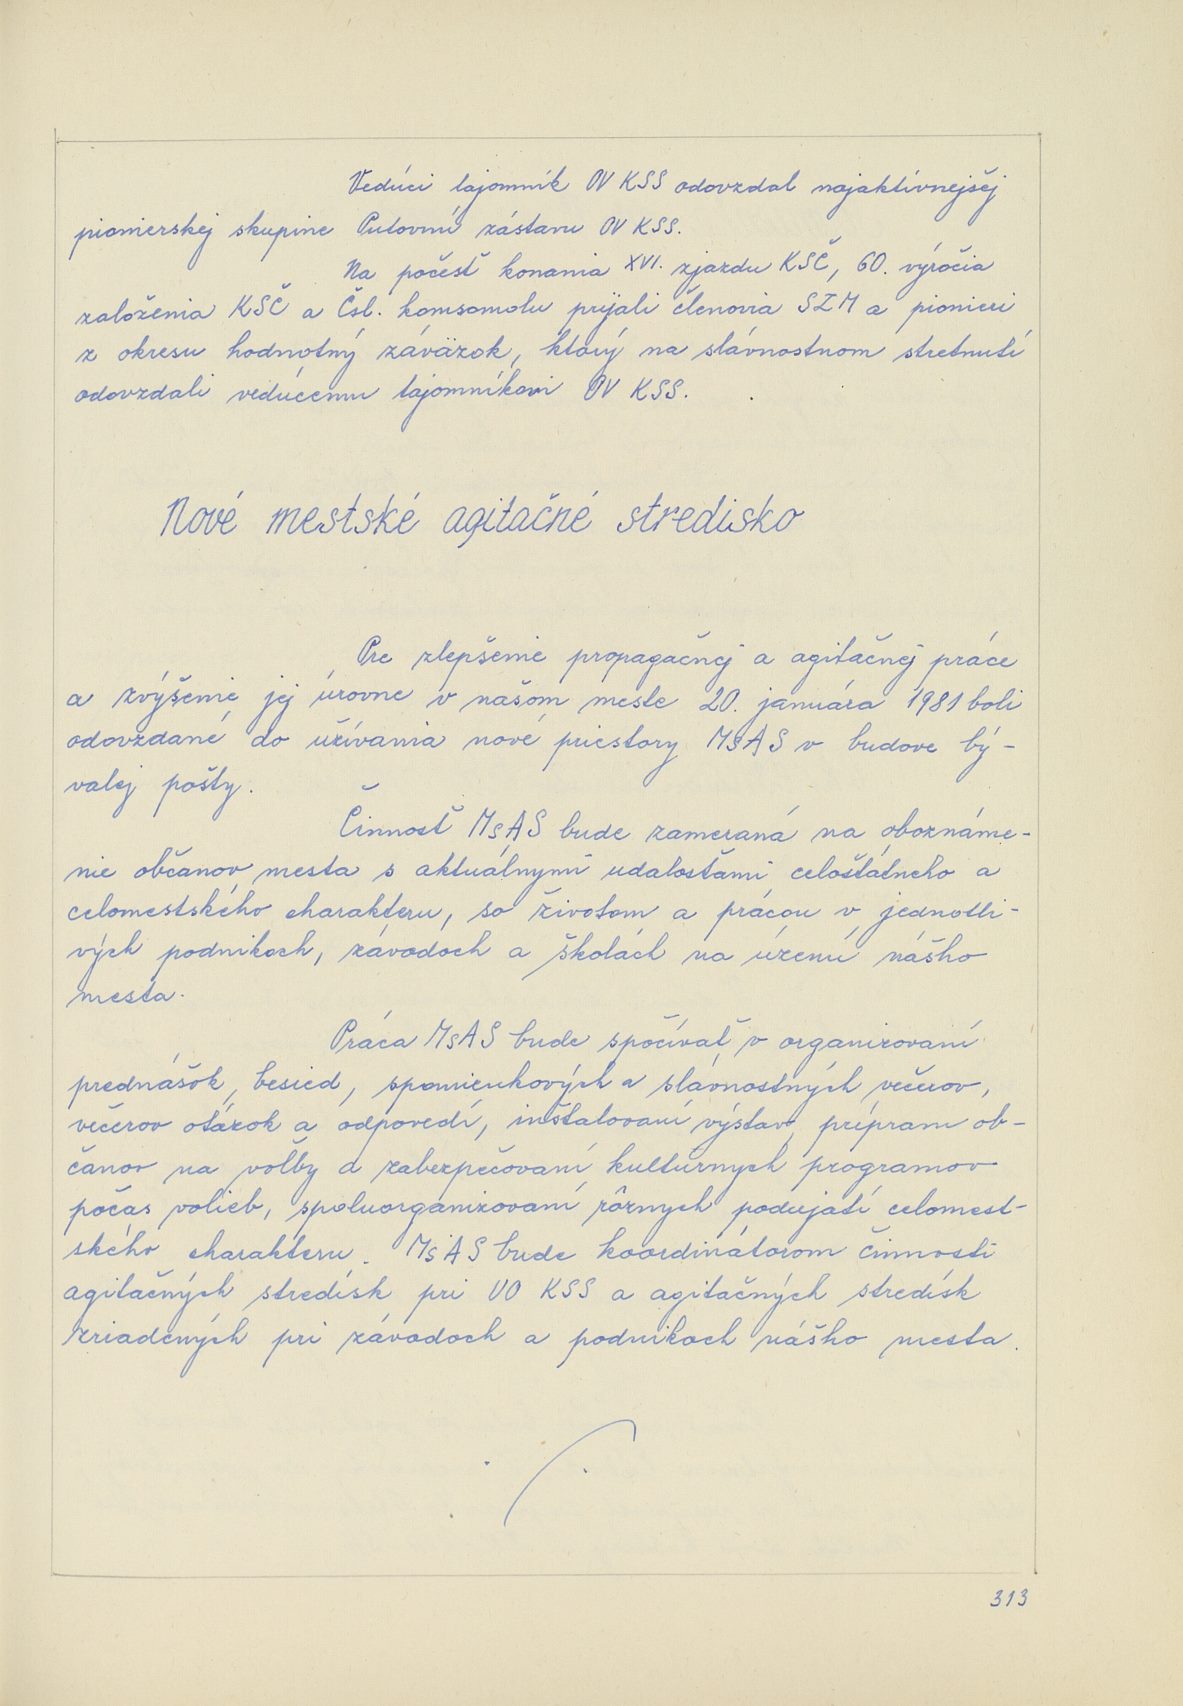 Vedúci tajomník OV KSS odovzdal najaktívnejšej
pionierskej skupine Putovnú zástavu OV KSS.
Na počesť konania XVI. zjazdu KSČ, 60. výročia
založenia KSČ a Čsl. komsomolu prijali členovia SZM a pionieri
z okresu hodnotný záväzok, ktorý na slávnostnom stretnutí
odovzdali vedúcemu tajomníkovi OV KSS.
Nové mestské agitačné stredisko
Pre zlepšenie propagačnej a agitačnej práce
a zvýšenie jej úrovne v našom meste 20. januára 1981 boli
odovzdané do užívania nové priestory MsAS v budove bý-
valej pošty.
Činnosť MsAS bude zameraná na oboznáme-
nie občanov mesta s aktuálnymi udalosťami celoštátneho a
celomestského charakteru, so životom a prácou v jednotli-
vých podnikoch, závodoch a školách na území nášho
mesta.
Práca MsAS bude spočívať v organizovaní
prednášok, besied, spomienkových a slávnostných večerov,
večerov otázok a odpovedí, inštalovaní výstav, príprave ob-
čanov na voľby a zabezpečovaní kultúrnych programov
počas volieb, spoluorganizovaní rôznych podujatí celomest-
ského charakteru. MsAS bude koordinátorom činnosti
agitačných stredísk pri VO KSS a agitačných stredísk
zriadených pri závodoch a podnikoch nášho mesta.
313